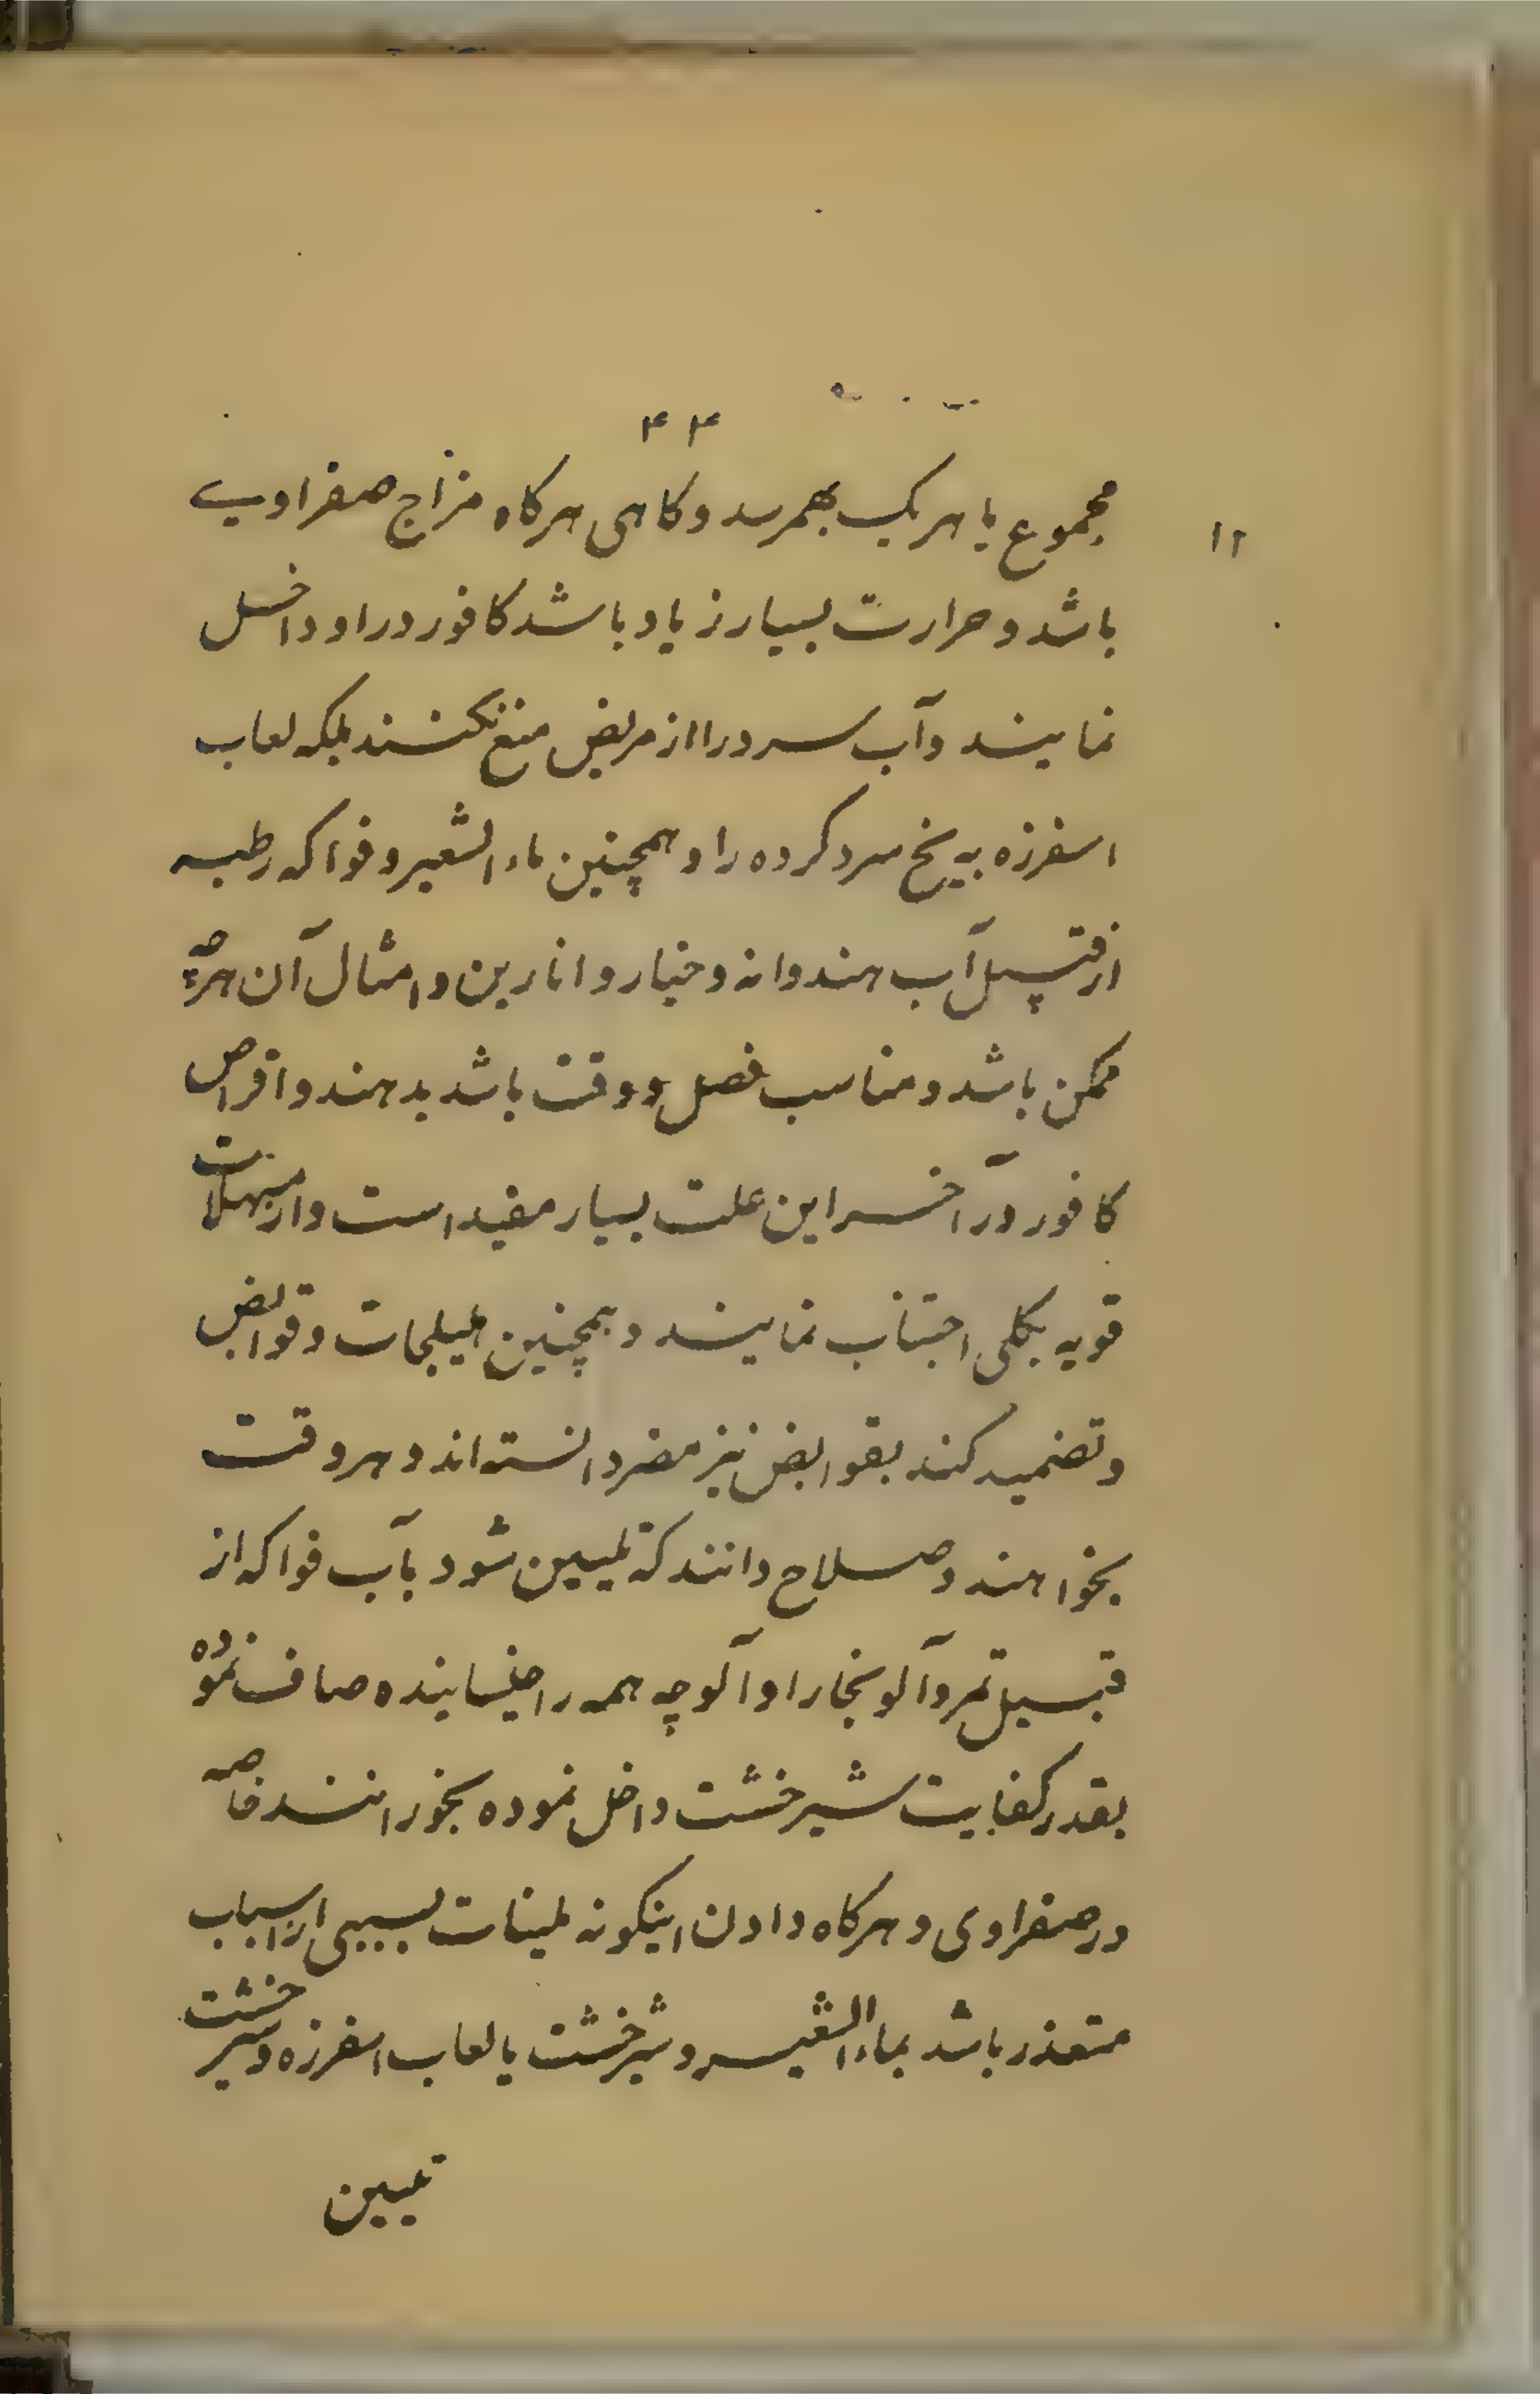 ۴۴
۱۲
مجموع یا هر یک بهمرسد و کاهی هرکاه مزاج صفراوی
باشد و حرارت بسیار زیاد باشد کافور در او داخل
نمایند و آب سرد را از مریض منع نکنند بلکه لعاب
اسفرزه به یخ سرد کرده را و همچنین ماء الشعیر و فواکه رطبه
از قبیل آب هندوانه و خیار و انارین و امثال آن هرچه
ممکن باشد و مناسب فصل و وقت باشد بدهند و اقراص
کافور در آخر این علت بسیار مفید است و از مسهلات
قویه بکلی اجتناب نمایند و همچنین هلیلجات و قوابض
و تضمید کنند بقوابض نیز مضر دانسته اند و هر وقت
بخواهند و صلاح دانند که تلیین شود بآب فواکه از
قبیل تمر و آلو بخارا و آلوچه همه را خیسانیده صاف نموده
بقدر کفایت شیرخشت داخل نموده بخورانند خاصه
در صفراوی و هرکاه دادن اینکونه ملینات بسببی از اسباب
متعذر باشد بماء الشعیر و شیرخشت یا لعاب اسفرزه و شیر خشت
تلیین